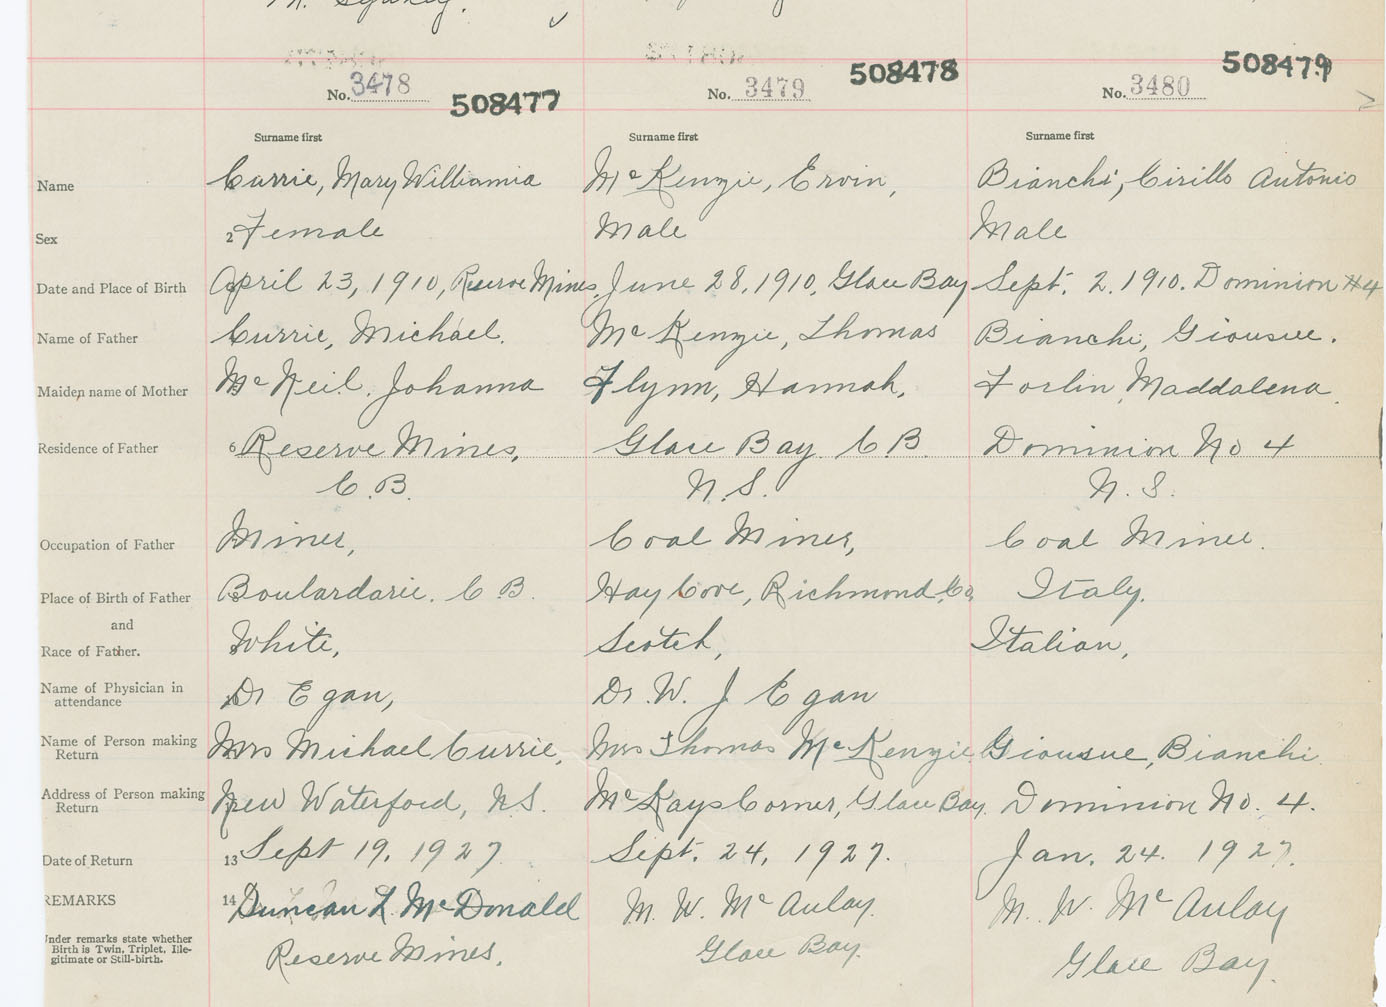 M. Sydney.
No. 3478 508477 No. 3479 508478 No. 3480 508479
Surname first Surname first Surname first
Name Currie, Mary Williamia McKenzie, Ervin, Bianchi, Cirillo Antonio
Sex 2 Female Male Male
Date and Place of Birth April 23, 1910, Reserve Mines, June 28, 1910, Glace Bay Sept. 2. 1910. Dominion #4
Name of Father Currie, Michael. McKenzie, Thomas Bianchi, Giousue.
Maiden name of Mother McNeil, Johanna Flynn, Hannah, Forlin, Maddalena.
Residence of Father 6 Reserve Mines, Glace Bay. C.B. Dominion No 4
C.B. N.S. N.S.
Occupation of Father Miner, Coal Miner, Coal Miner.
Place of Birth of Father Boulardarie. C.B. Hay Cove, Richmond, Co, Italy.
and
Race of Father. White, Scotch, Italian,
Name of Physician in attendance Dr Egan, Dr. W. J Egan
Name of Person making Return Mrs Michael Currie, Mrs Thomas McKenzie, Giousue, Bianchi.
Address of Person making Return New Waterford, N.S. McKays Corner, Glace Bay. Dominion No. 4.
Date of Return 13 Sept 19, 1927. Sept. 24, 1927. Jan. 24. 1927.
REMARKS 14 Duncan L McDonald M. W. McAulay. M. W. McAulay
Under remarks state whether Birth is Twin, Triplet, Illegitimate or Still-birth. Reserve Mines. Glace Bay. Glace Bay.